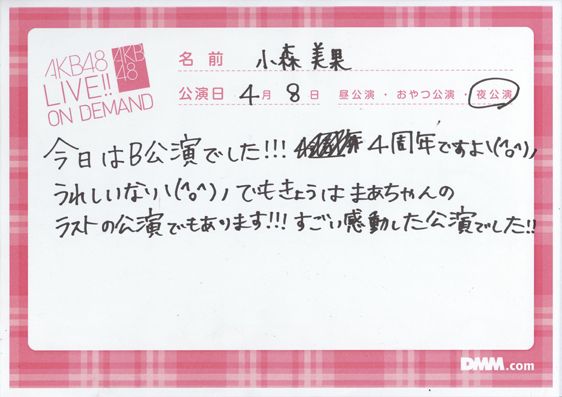 AKB48
LIVE!!
ON DEMAND
AKB
48
名前 小森美果
公演日 4月8日 昼公演・おやつ公演・夜公演
今日はB公演でした!!! 4周年ですよ\(^o^)ノ
うれしいなぃ\(^o^)ノでもきょうはまあちゃんの
ラストの公演でもあります!!!すごい感動した公演でした!!
DMM.com